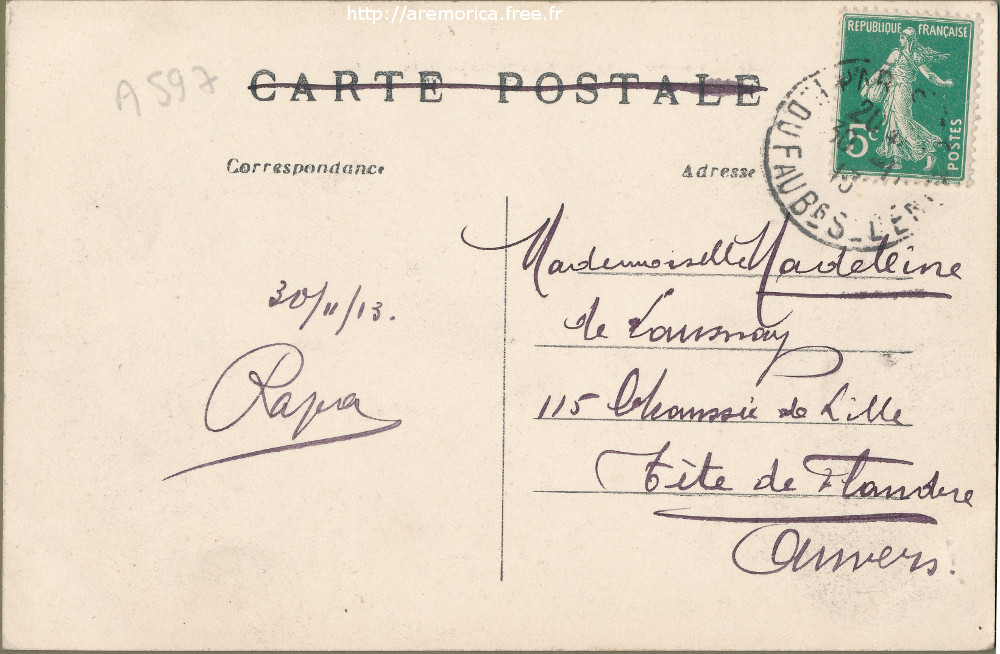 http://aremorica.free.fr
A 597
CARTE POSTALE
REPUBLIQUE FRANÇAISE
5c
POSTES
DU FAUBG S-DENIS
Correspondance
Adresse
30/11/13.
Mademoiselle Madeleine
de
115 Chaussée de Lille
Tête de Flandre
Anvers.